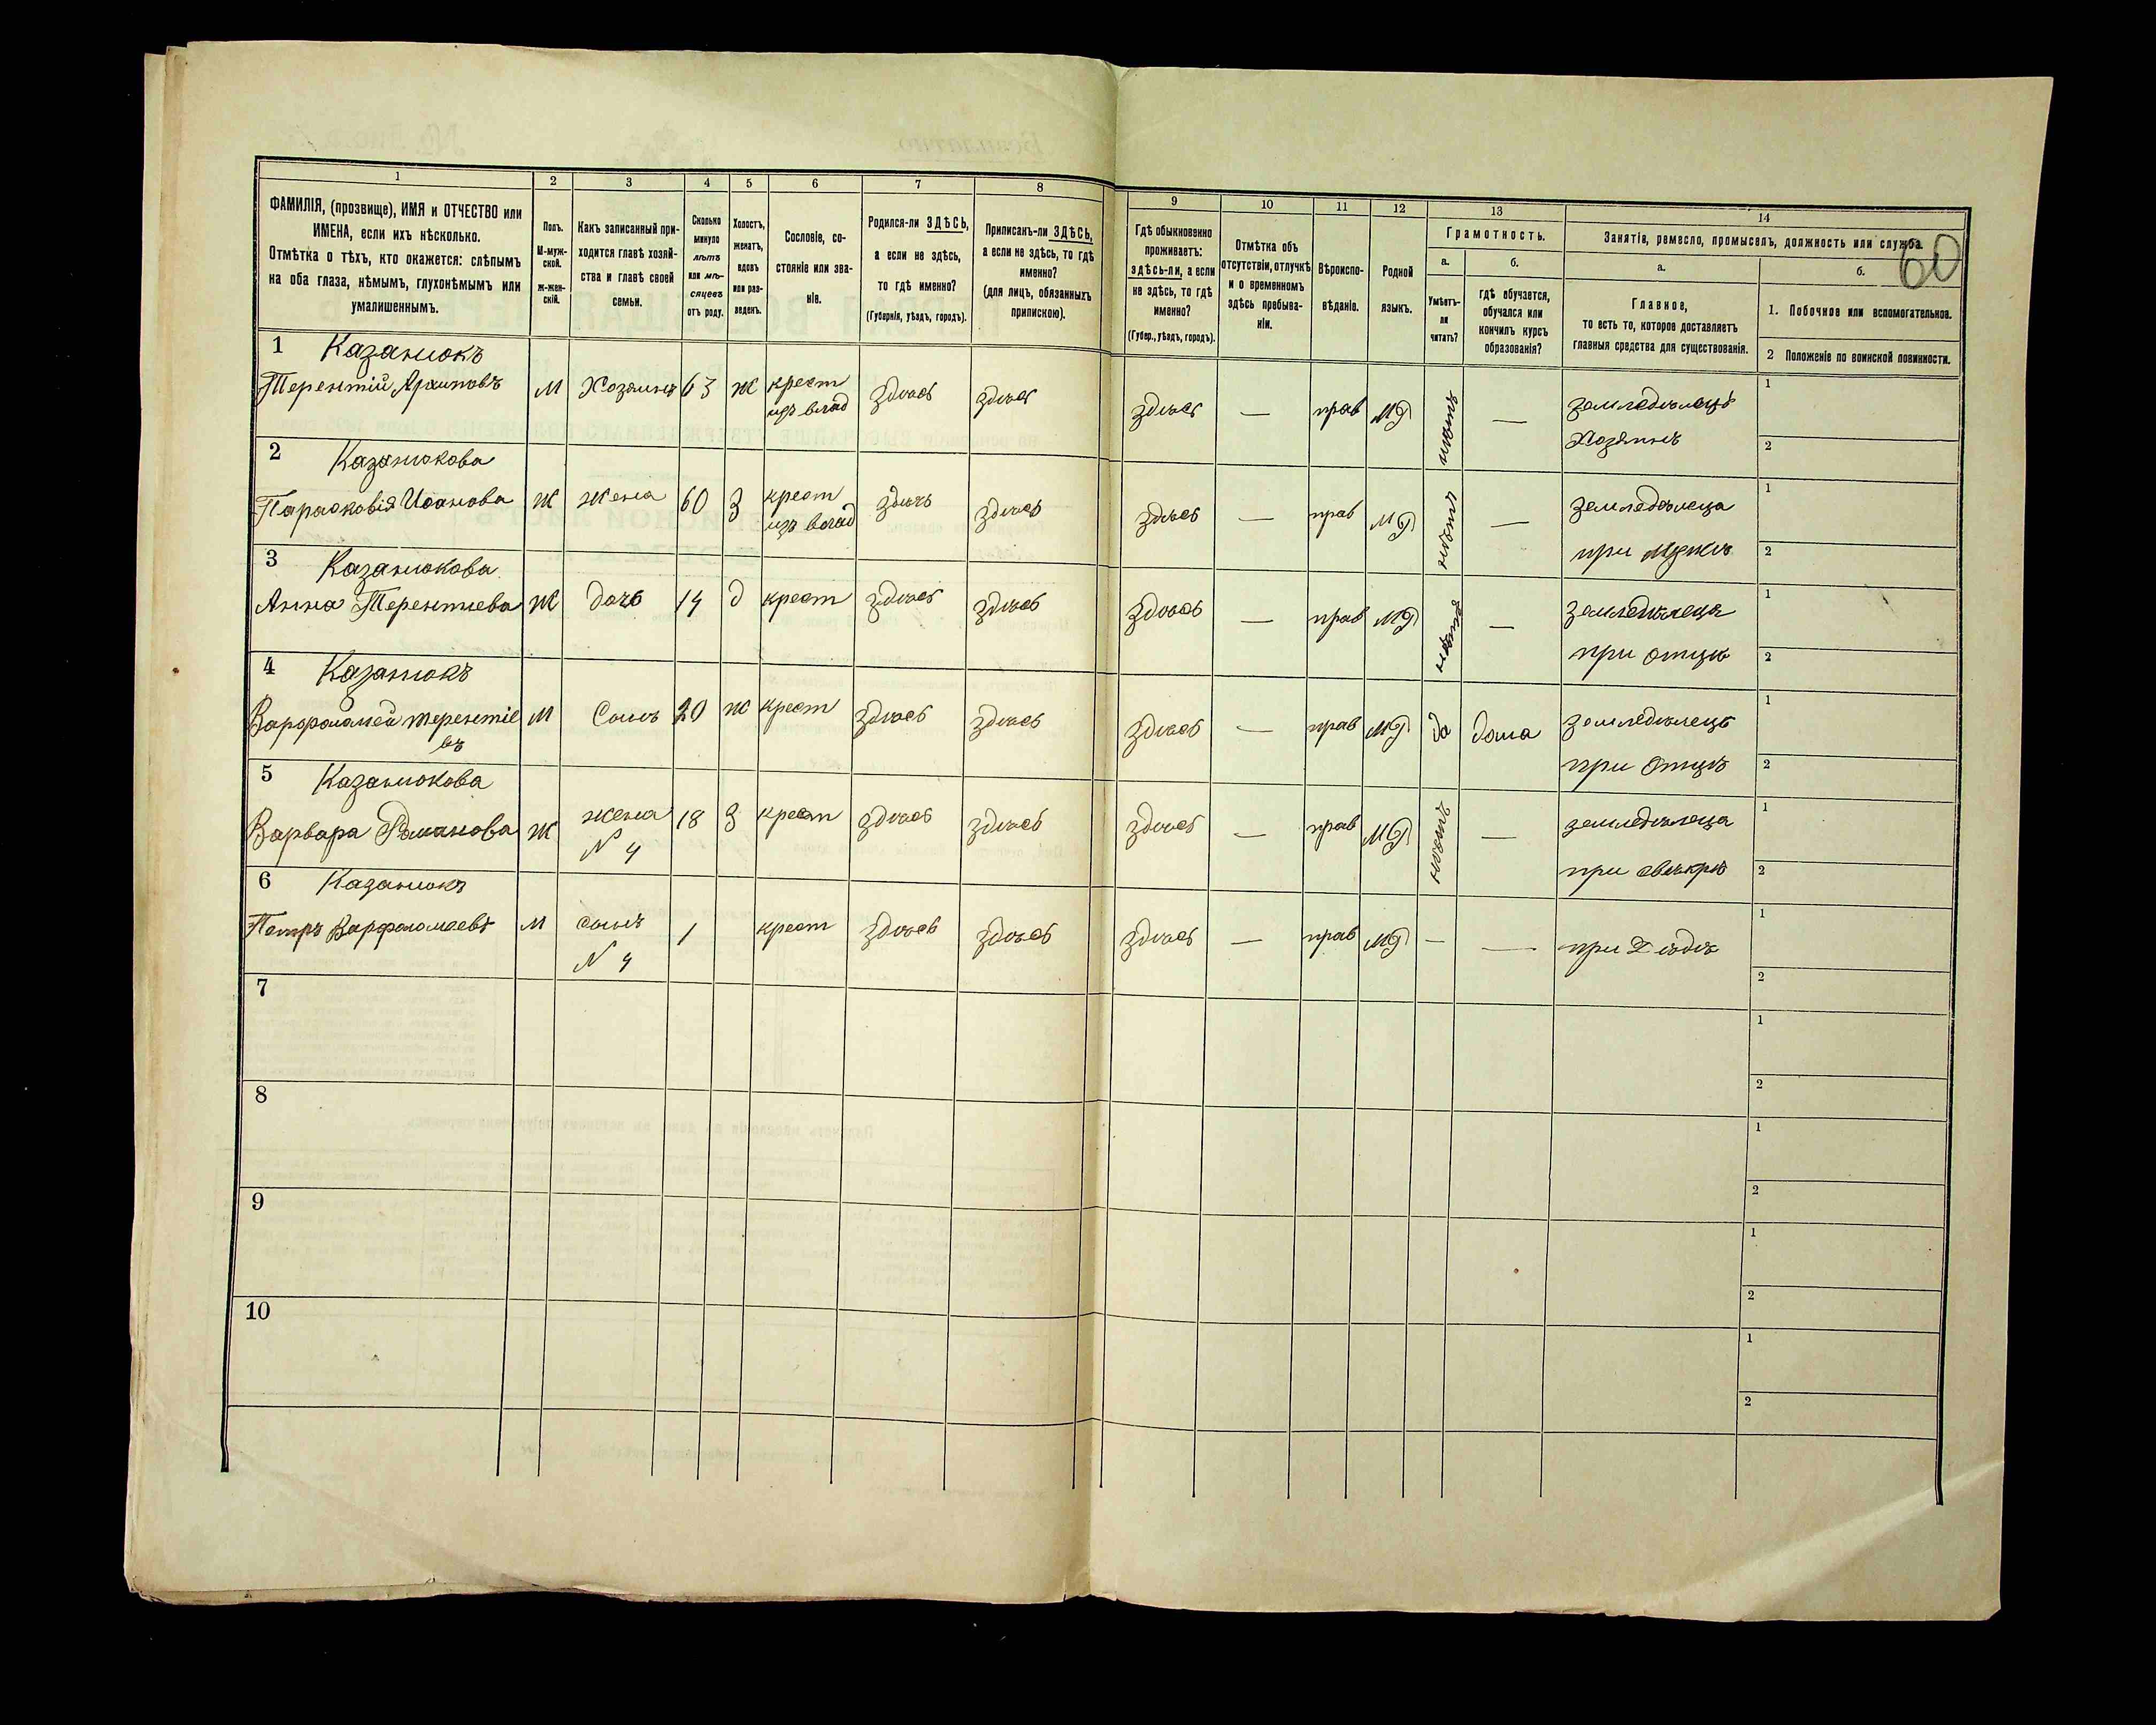 60
1 2 3 4 5 6 7 8 9 10 11 12 13 14
ФАМИЛІЯ, (прозвище), ИМЯ и ОТЧЕСТВО или
ИМЕНА, если ихъ нѣсколько.
Отмѣтка о тѣхъ, кто окажется: слѣпымъ
на оба глаза, нѣмымъ, глухонѣмымъ или
умалишеннымъ.
Полъ.
М-муж-
ской.
ж-жен-
скій.
Какъ записанный при-
ходится главѣ хозяй-
ства и главѣ своей
семьи.
Сколько
минуло
лѣтъ
или мѣ-
сяцевъ
отъ роду.
Холостъ,
женатъ,
вдовъ
или раз-
веденъ.
Сословіе, со-
стояніе или зва-
ніе.
Родился-ли ЗДѢСЬ,
а если не здѣсь,
то гдѣ именно?
(Губернія, уѣздъ, городъ).
Приписанъ-ли ЗДѢСЬ,
а если не здѣсь, то гдѣ
именно?
(для лицъ, обязанныхъ
припискою).
Гдѣ обыкновенно
проживаетъ:
здѣсь-ли, а если
не здѣсь, то гдѣ
именно?
(Губер., уѣздъ, городъ).
Отмѣтка объ
отсутствіи, отлучкѣ
и о временномъ
здѣсь пребыва-
ніи.
Вѣроиспо-
вѣданіе.
Родной
языкъ.
Грамотность.
а.
Умѣетъ-
ли
читать?
б.
гдѣ обучается,
обучался или
кончилъ курсъ
образованія?
Занятіе, ремесло, промыселъ, должность или служба.
а.
Главное,
то есть то, которое доставляетъ
главныя средства для существованія.
б.
1. Побочное или вспомогательное.
2 Положеніе по воинской повинности.
1 Казанюкъ
Терентій Архиповъ М Хозяинъ 63 ж крест здѣсь здѣсь здѣсь — прав нѣтъ — земледѣлецъ 1
изъ влад Хозяинъ 2
2 Казанюкова
Парасковія Иванова Ж жена 60 З крест здѣсь здѣсь здѣсь — прав нѣтъ — земледѣлеца 1
изъ влад при мужѣ 2
3 Казанюкова
Анна Терентиева Ж дочь 14 д крест здѣсь здѣсь здѣсь — прав нѣтъ — земледѣлеца 1
при отцѣ 2
4 Казанюкъ
Варфоламей терентіе М Сынъ 20 ж крест здѣсь здѣсь здѣсь — прав да дома земледѣлецъ 1
въ при отцѣ 2
5 Казанюкова
Варвара Романова Ж жена 18 З крест здѣсь здѣсь здѣсь — прав нѣтъ — земледѣлеца 1
N 4 при свекрѣ 2
6 Казанюкъ
Петръ Варфоломеевъ М сынъ 1 крест здѣсь здѣсь здѣсь — прав — — при Дѣдѣ 1
N 4 2
7 1
2
8 1
2
9 1
2
10 1
2